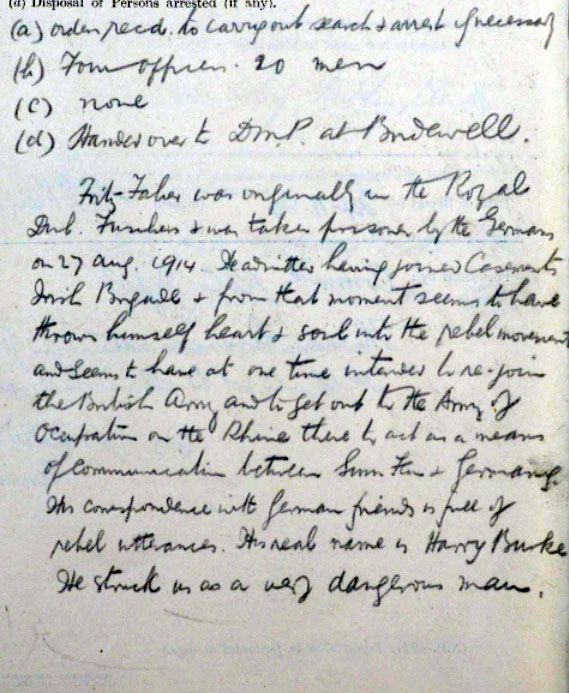 (d) Disposal of Persons arrested (if any).
(a) orders recd. to carry out search & arrest if necessary
(b) Four officers. 20 men
(c) none
(d) Handed over to D.M.P. at Bridewell.
Fritz Faber was originally in the Royal
Dub. Fusiliers & was taken prisoner by the Germans
on 27 Aug. 1914. He admitted having joined Casements
Irish Brigade & from that moment seems to have
thrown himself heart & soul into the rebel movement
and seems to have at one time intended to re-join
the British Army and to get out to the Army of
Occupation on the Rhine there to act as a means
of communication between Sinn Fein & Germany.
His correspondence with German friends is full of
rebel utterances. His real name is Harry Burke
He struck us as a very dangerous man.